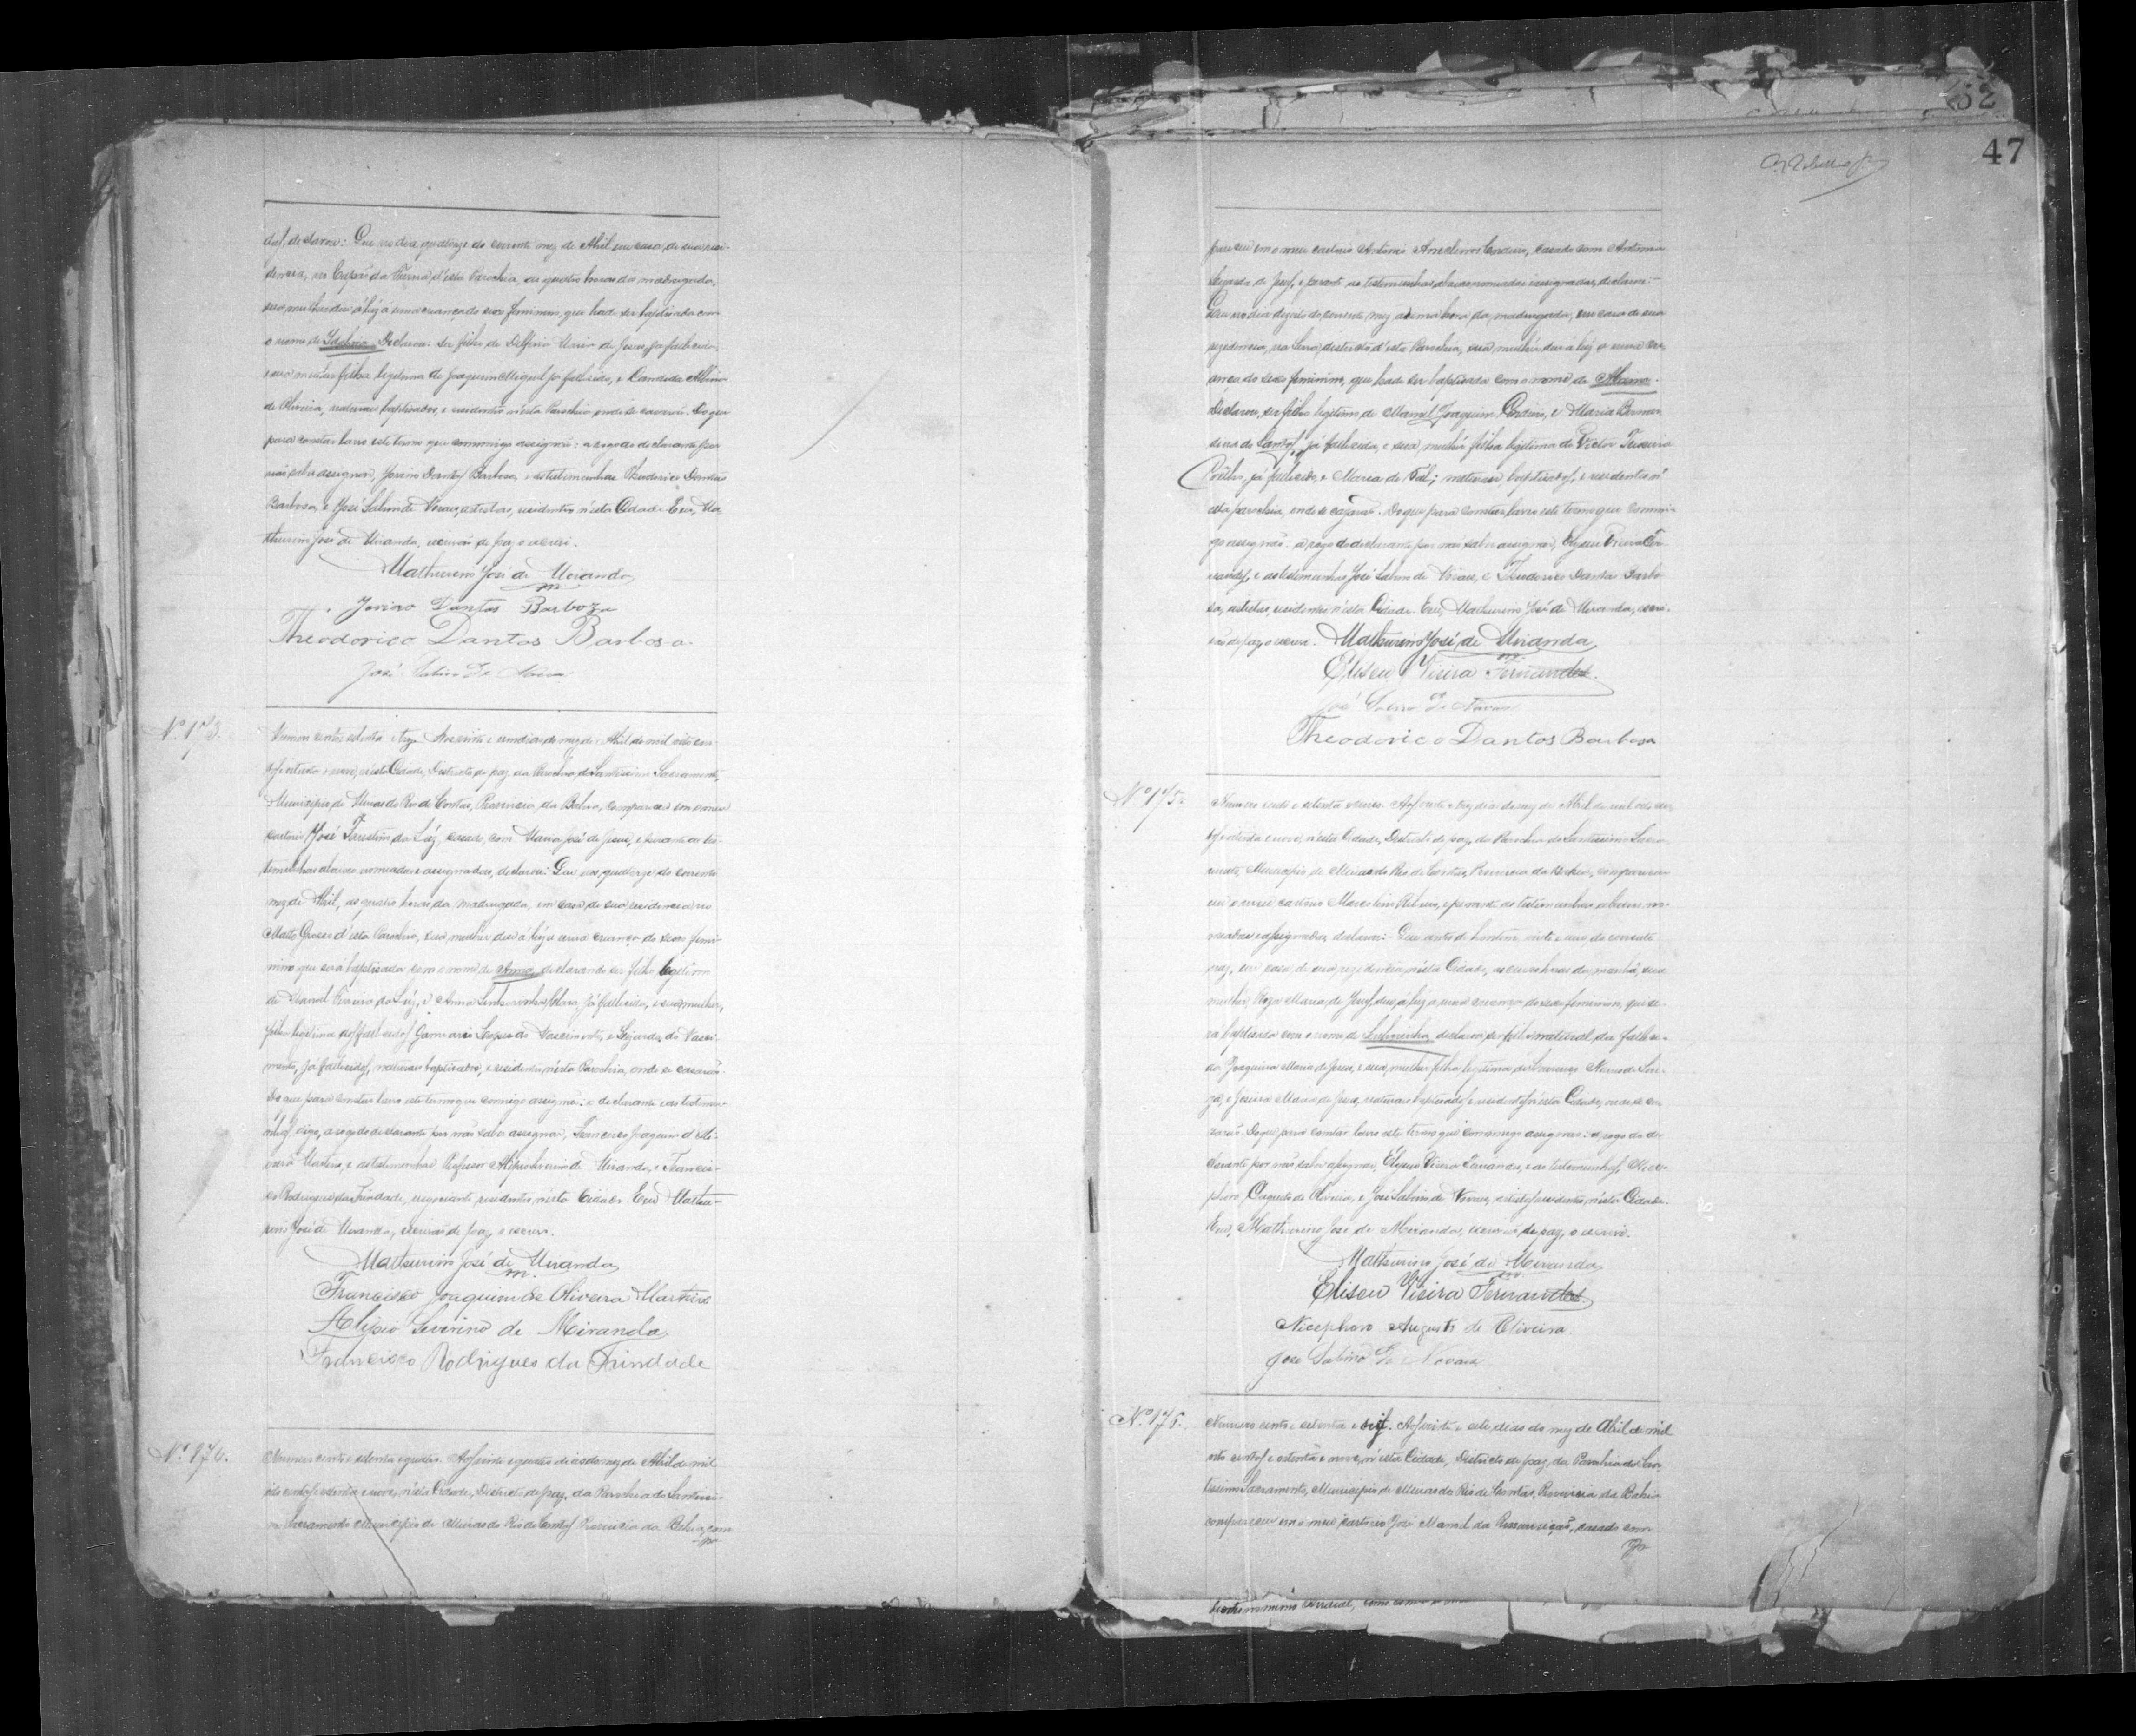 dos, declarou: Que no dia quatorze do corrente mez de Abril em casa de sua resi-
dencia, no d'esta Parochia, as quatro horas da madrugada,
sua mulher deu á luz a uma criança do sexo feminino, que hade ser baptisada com
o nome de Idalina. Declarou: ser filho de Delfina Maria de Jesus, já fallecida,
e sua mulher filha legitima de Joaquim Miguel já fallecido, e Candida
de Oliveira, naturaes baptisados, e residentes n'esta Parochia onde se casarão. Do que
para constar lavro este termo que commigo assignão: a rogo do declarante por
não saber assignar, Jovino Dantas Barbosa, e as testemunhas Theodorico Dantas
Barbosa, e José Sabino de Novaes, artistas, residentes n'esta Cidade. Eu, Ma-
thurino José de Miranda, escrivão de paz o escrevi.
Mathurino José de Miranda
Jovino Dantas Barboza
Theodorico Dantas Barbosa
José Sabino de Novaes
Nº 173.
Numero cento setenta e trez. Aos vinte e um dias do mez de Abril de mil oito cen-
tos oitenta e nove, n'esta Cidade, Districto de paz da Parochia do Santissimo Sacramento,
Municipio de Minas do Rio de Contas, Provincia da Bahia, compareceu em o meu
cartorio José Faustino da Luz, casado com Maria José de Jesus, e perante as tes-
temunhas abaixo nomeadas e assignadas, declarou: Que aos quatorze do corrente
mez de Abril, as quatro horas da madrugada, em casa de sua residencia no
Matto Grosso d'esta Parochia, sua mulher deu á luz a uma criança do sexo femi-
nino que sera baptisada com o nome de Anna, declarando ser filho legitimo
de Manoel Pereira da Luz, e Anna já fallecida, e sua mulher,
filha legitima dos fallecidos Januario Lopes do Nascimento, e do Nasci-
mento, já fallecidos, naturaes baptisados, e residentes n'esta Parochia, onde se casarão.
Do que para constar lavro este termo que comigo assigna: o declarante e as testemu-
nhas, digo, a rogo do declarante por não saber assignar, Francisco Joaquim d'Oli-
veira Martins, e as testemunhas Professor Alipio Severino de Miranda, e Francis-
co Rodrigues da Trindade, negociante, residentes n'esta Cidade. Eu Mathu-
rino José de Miranda, escrivão de paz, o escrevi.
Mathurino José de Miranda
Francisco Joaquim de Oliveira Martins
Alipio Severino de Miranda
Francisco Rodrigues da Trindade
Nº 174.
Numero cento e setenta e quatro. Aos vinte e quatro dias do mez de Abril de mil
oito centos e oitenta e nove, n'esta Cidade, Districto de paz, da Parochia do Santissi-
mo Sacramento Municipio de Minas do Rio de Contas Provincia da Bahia, com-
52
47
pareceu em o meu cartorio Antonio Anselmo Cardoso, casado com Antonia
de Jesus, e perante as testemunhas abaixo nomeadas e assignadas, declarou:
Que no dia do corrente mez a uma hora da madrugada, em casa de sua
rezidencia, na districto d'esta Parochia, sua mulher deu a luz a uma cri-
ança do sexo feminino, que hade ser baptisada com o nome de
Declarou, ser filho legitimo de Manoel Joaquim Cardoso, e Maria Bernar-
dina de já fallecida, e sua mulher filha legitima de Victor Teixeira
Coelho, já fallecido, e Maria de Tal; naturaes baptisados, e residentes n'
esta parochia, onde se cazarão. Do que para constar lavro este termo que commi-
go assignão: a rogo do declarante por não saber assignar, Elyseu Vieira Fer-
nandes, e as testemunhas José Sabino de Novaes, e Theodorico Dantas Barbo-
sa, artistas, residentes n'esta Cidade. Eu, Mathurino José de Miranda, escri-
vão de paz o escrevi. Mathurino José de Miranda
Eliseu Vieira Fernandes.
José Sabino de Novaes
Theodorico Dantas Barbosa
Nº 175.
Numero cento e setenta e cinco. Aos vinte e trez dias do mez de Abril de mil oito cen-
tos oitenta e nove, n'esta Cidade, Districto de paz, da Parochia do Santissimo Sacra-
mento, Municipio de Minas do Rio de Contas, Provincia da Bahia, compareceu
em o meu cartorio Marcolino e perante as testemunhas abaixo no-
meadas e assignadas, declarou: Que antes de hontem vinte e um do corrente
mez, em casa de sua rezidencia n'esta Cidade, as horas da manhã, sua
mulher Roza Maria de Jesus, deu, a luz a, uma criança do sexo feminino, que se-
ra baptisada com o nome de declarou ser filho natural da falleci-
da Joaquina Maria de Jesus, e sua mulher filha legitima de Lourenço Nunes de Sou-
za, e Maria de Jesus, naturaes baptisados e residentes n'esta Cidade, onde se ca-
sarão. Do que para constar lavro este termo que commigo assignão: a rogo do de-
clarante por não saber assignar, Elyseu Vieira Fernandes, e as testemunhas, Nice-
phoro Augusto de Oliveira, e José Sabino de Novaes, artistas residentes, n'esta Cidade.
Eu, Mathurino José de Miranda, escrivão de paz, o escrevi.
Mathurino José de Miranda
Eliseu Vieira Fernandes
Nicephoro Augusto de Oliveira
José Sabino de Novaes
Nº 176.
Numero cento e setenta e seis. Aos vinte e sete dias do mez de Abril de mil
oito centos e oitenta e nove, n'esta Cidade, Districto de paz, da Parochia do San-
tissimo Sacramento, Municipio de Minas do Rio de Contas, Provincia da Bahia
compareceu em o meu cartorio José Manoel da Ressurreição, casado com